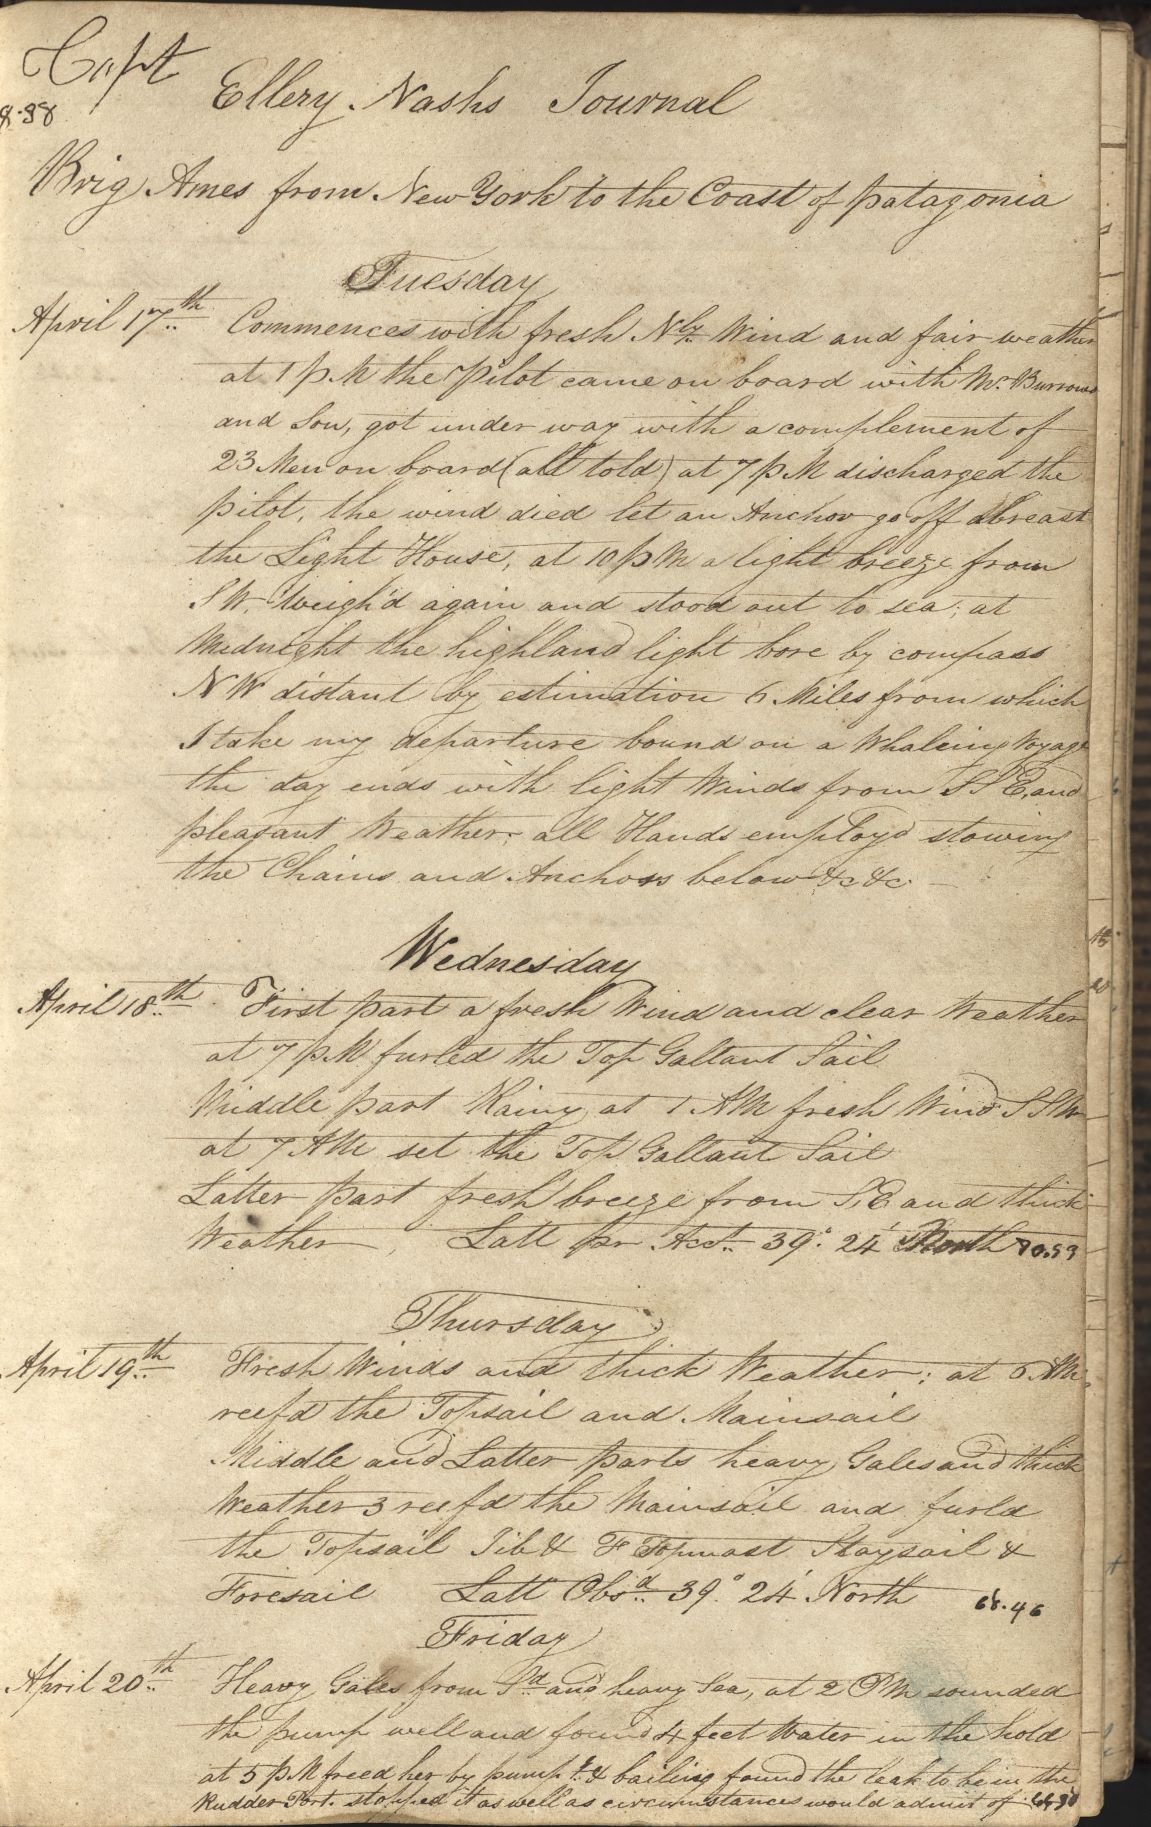 Capt
8.38
Ellery Nashs Journal
Brig Ames from New York to the Coast of patagonia
Tuesday
April 17th Commences with fresh Nly Wind and fair weather
at 1 PM the Pilot came on board with Mr Burrows
and Son, got under way with a complement of
23 Men on board (all told) at 7 PM discharged the
pilot, the wind died let an Anchor go off abreast
the Light House, at 10 PM a light breeze from
SW. Weigh'd again and stood out to sea; at
Midnight the highland light bore by compass
NW distant by estimation 6 Miles from which
I take my departure bound on a Whaleing Voyage
the day ends with light Winds from SSE, and
pleasant Weather. all Hands employd stowing
the Chains and Anchors below &c &c
Wednesday
April 18th First part a fresh Wind and clear Weather
at 7 PM furled the Top Gallant Sail
Middle part Rainy, at 1 AM fresh Wind SSW
at 7 AM set the Top Gallant Sail
Latter part fresh breeze from S,E and thick
Weather, Latt pr Acct. 39° 24' North 70.59
Thursday
April 19th Fresh Winds and thick Weather; at 6 AM
reefd the Topsail and Mainsail
Middle and Latter parts heavy Gales and thick
Weather 3 reefd the Mainsail and furld
the Topsail Jib & F Topmast Staysail &
Foresail Latt Obsd 39° 24' North 68.46
Friday
April 20th Heavy Gales from Sd and heavy Sea, at 2 PM sounded
the pump well and found 4 feet Water in the hold
at 5 PM freed her by pumpg & bailing found the leak to be in the
Rudder Port. stopped it as well as circumstances would admit of